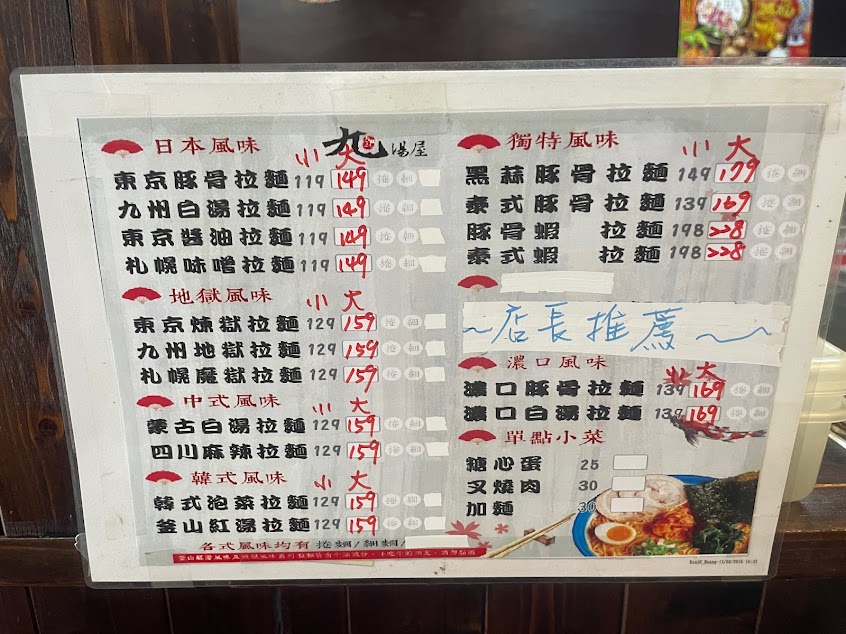 日本風味
九湯屋
小 大
東京豚骨拉麵 119 149 捲 細
九州白湯拉麵 119 149 捲 細
東京醬油拉麵 119 149 捲 細
札幌味噌拉麵 119 149 捲 細
地獄風味 小 大
東京煉獄拉麵 129 159 捲 細
九州地獄拉麵 129 159 捲 細
札幌魔獄拉麵 129 159 捲 細
中式風味 小 大
蒙古白湯拉麵 129 159 捲 細
四川麻辣拉麵 129 159 捲 細
韓式風味 小 大
韓式泡菜拉麵 129 159 捲 細
釜山紅湯拉麵 129 159 捲 細
各式風味均有 捲麵/細麵/
獨特風味 小 大
黑蒜豚骨拉麵 149 179 捲 細
泰式豚骨拉麵 139 169 捲 細
豚骨蝦 拉麵 198 228 捲 細
泰式蝦 拉麵 198 228 捲 細
~店長推薦~
濃口風味 小 大
濃口豚骨拉麵 139 169 捲 細
濃口白湯拉麵 139 169 捲 細
單點小菜
糖心蛋 25
叉燒肉 30
加麵 30